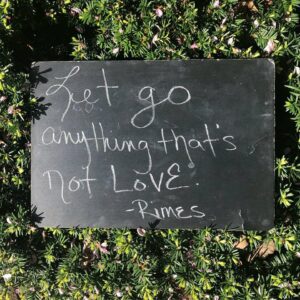 Let go
anything that's
not LOVE.
-RIMES